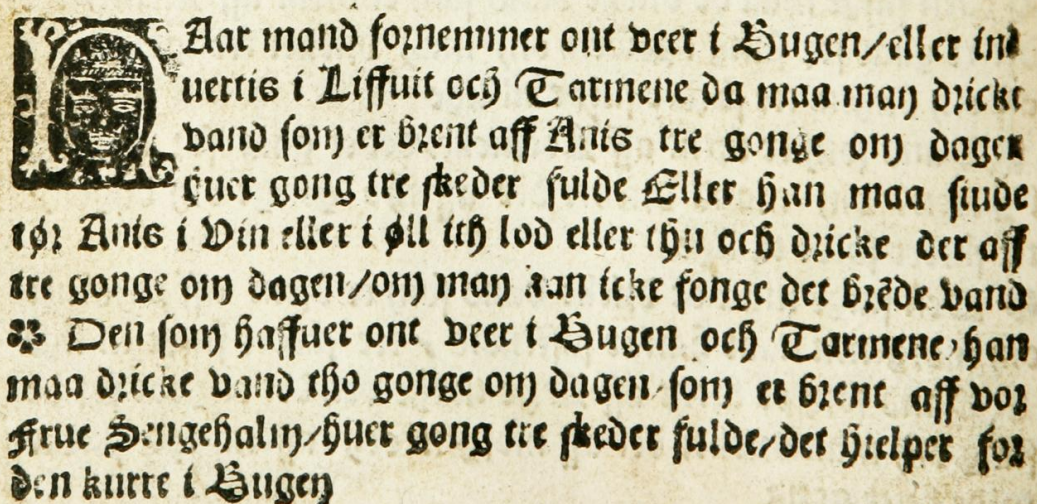 NAar mand fornemmer ont veer i Bugen/eller ind
uertis i Liffuit och Tarmene da maa man dricke
vand som er brent aff Anis tre gonge om dagen
huer gong tre skeder fulde Eller han maa siude
tør Anis i Vin eller i øll ith lod eller thu och dricke der aff
tre gonge om dagen/om man kan icke fonge det brēde vand
✽ Den som haffuer ont veer i Bugen och Tarmene/han
maa dricke vand tho gonge om dagen/som er brent aff vor
Frue Sengehalm/huer gong tre skeder fulde/det hielper for
den kurre i Bugen